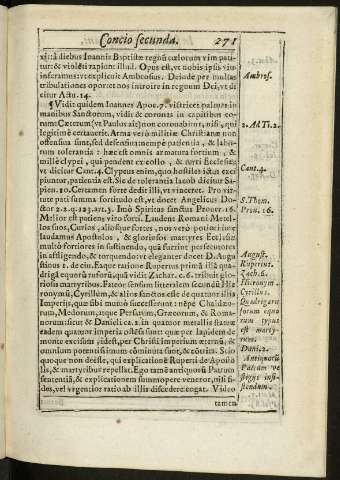 Concio secunda. 271
xj: à diebus Ioannis Baptistæ regnũ cœlorum vim pati
tur: & violẽti rapiunt illud. Opus est, vt nobis ipsis vim
inferamus: vt explicuit Ambrosius. Deinde per multas
tribulationes oportet nos introire in regnum Dei, vt di
citur Actu. 14.
¶ Vidit quidem Ioannes Apoc. 7. victrices palmas in
manibus Sanctorum, vidit & coronas in capitibus eo-
rum: Cæterum (vt Paulus ait) non coronabitur, nisi, qui
legitimè certauerit. Arma verò militiæ Christianæ non
offensiua sunt, sed defensiua: nempè patientia, & labo-
rum tolerantia: hæc est omnis armatura fortium, &
mille clypei, qui pendent ex collo, & turri Ecclesiæ:
vt dicitur Cant. 4. Clypeus enim, quo hostiles ictus exci
piuntur, patientia est. Sic de tolerantia Iacob dicitur Sa-
pien. 10. Certamen forte dedit illi, vt vinceret. Pro vir
tute pati summa fortitudo est, vt docet Angelicus Do-
ctor 2.2.q.123.art.3. Imò Spiritus sanctus Prouer. 16.
Melior est patiens viro forti. Laudent Romani Metel-
los suos, Curios, aliosque fortes, nos verò potiori iure
laudamus Apostolos, & gloriosos martyres Ecclesiæ
multò fortiores in sustinendo, quã fuerint persecutores
in affligendo, & torquendo: vt eleganter docet D. Augu
stinus 1. de ciui. Eaque ratione Rupertus primã illã qua-
drigã equorũ ruforũ, quã vidit Zachar. c. 6. tribuit glo-
riosis martyribus. Fateor sensum litteralem secundũ Hie
ronymũ, Cyrillum, & alios sanctos esse de quatuor illis
Imperijs, quæ sibi mutuò successerunt: nempe Chaldæo-
rum, Medorum, atque Persarum, Græcorum, & Roma-
norum: sicut & Danielis ca. 2. in quatuor metallis statuæ
eadem quatuor imperia ostẽsa sunt: quæ per lapidem de
monte excisum sine manibus, per Christi imperium æternũ, &
omnium potentissimum cõminuta sunt, & cõtrita. Scio
quoque non deesse, qui explicationẽ Ruperti de Aposto
lis, & martyribus repellat. Ego tamẽ antiquorũ Patrum
sententiã, & explicationem summopere veneror, nisi fi-
des, vel vrgentior ratio ab illis discedere cogat. Video
tamen
Ambros.
2. Ad Ti. 2.
Cant. 4.
S. Thom.
Prou. 16.
August.
Rupertus.
Zach. 6.
Hieronym.
Cyrillus.
Quadriga
forum equo
rum typus
est marty-
rum.
Dani. 2.
Antiquorũ
Patrum ve
stigijs insi-
stendum.